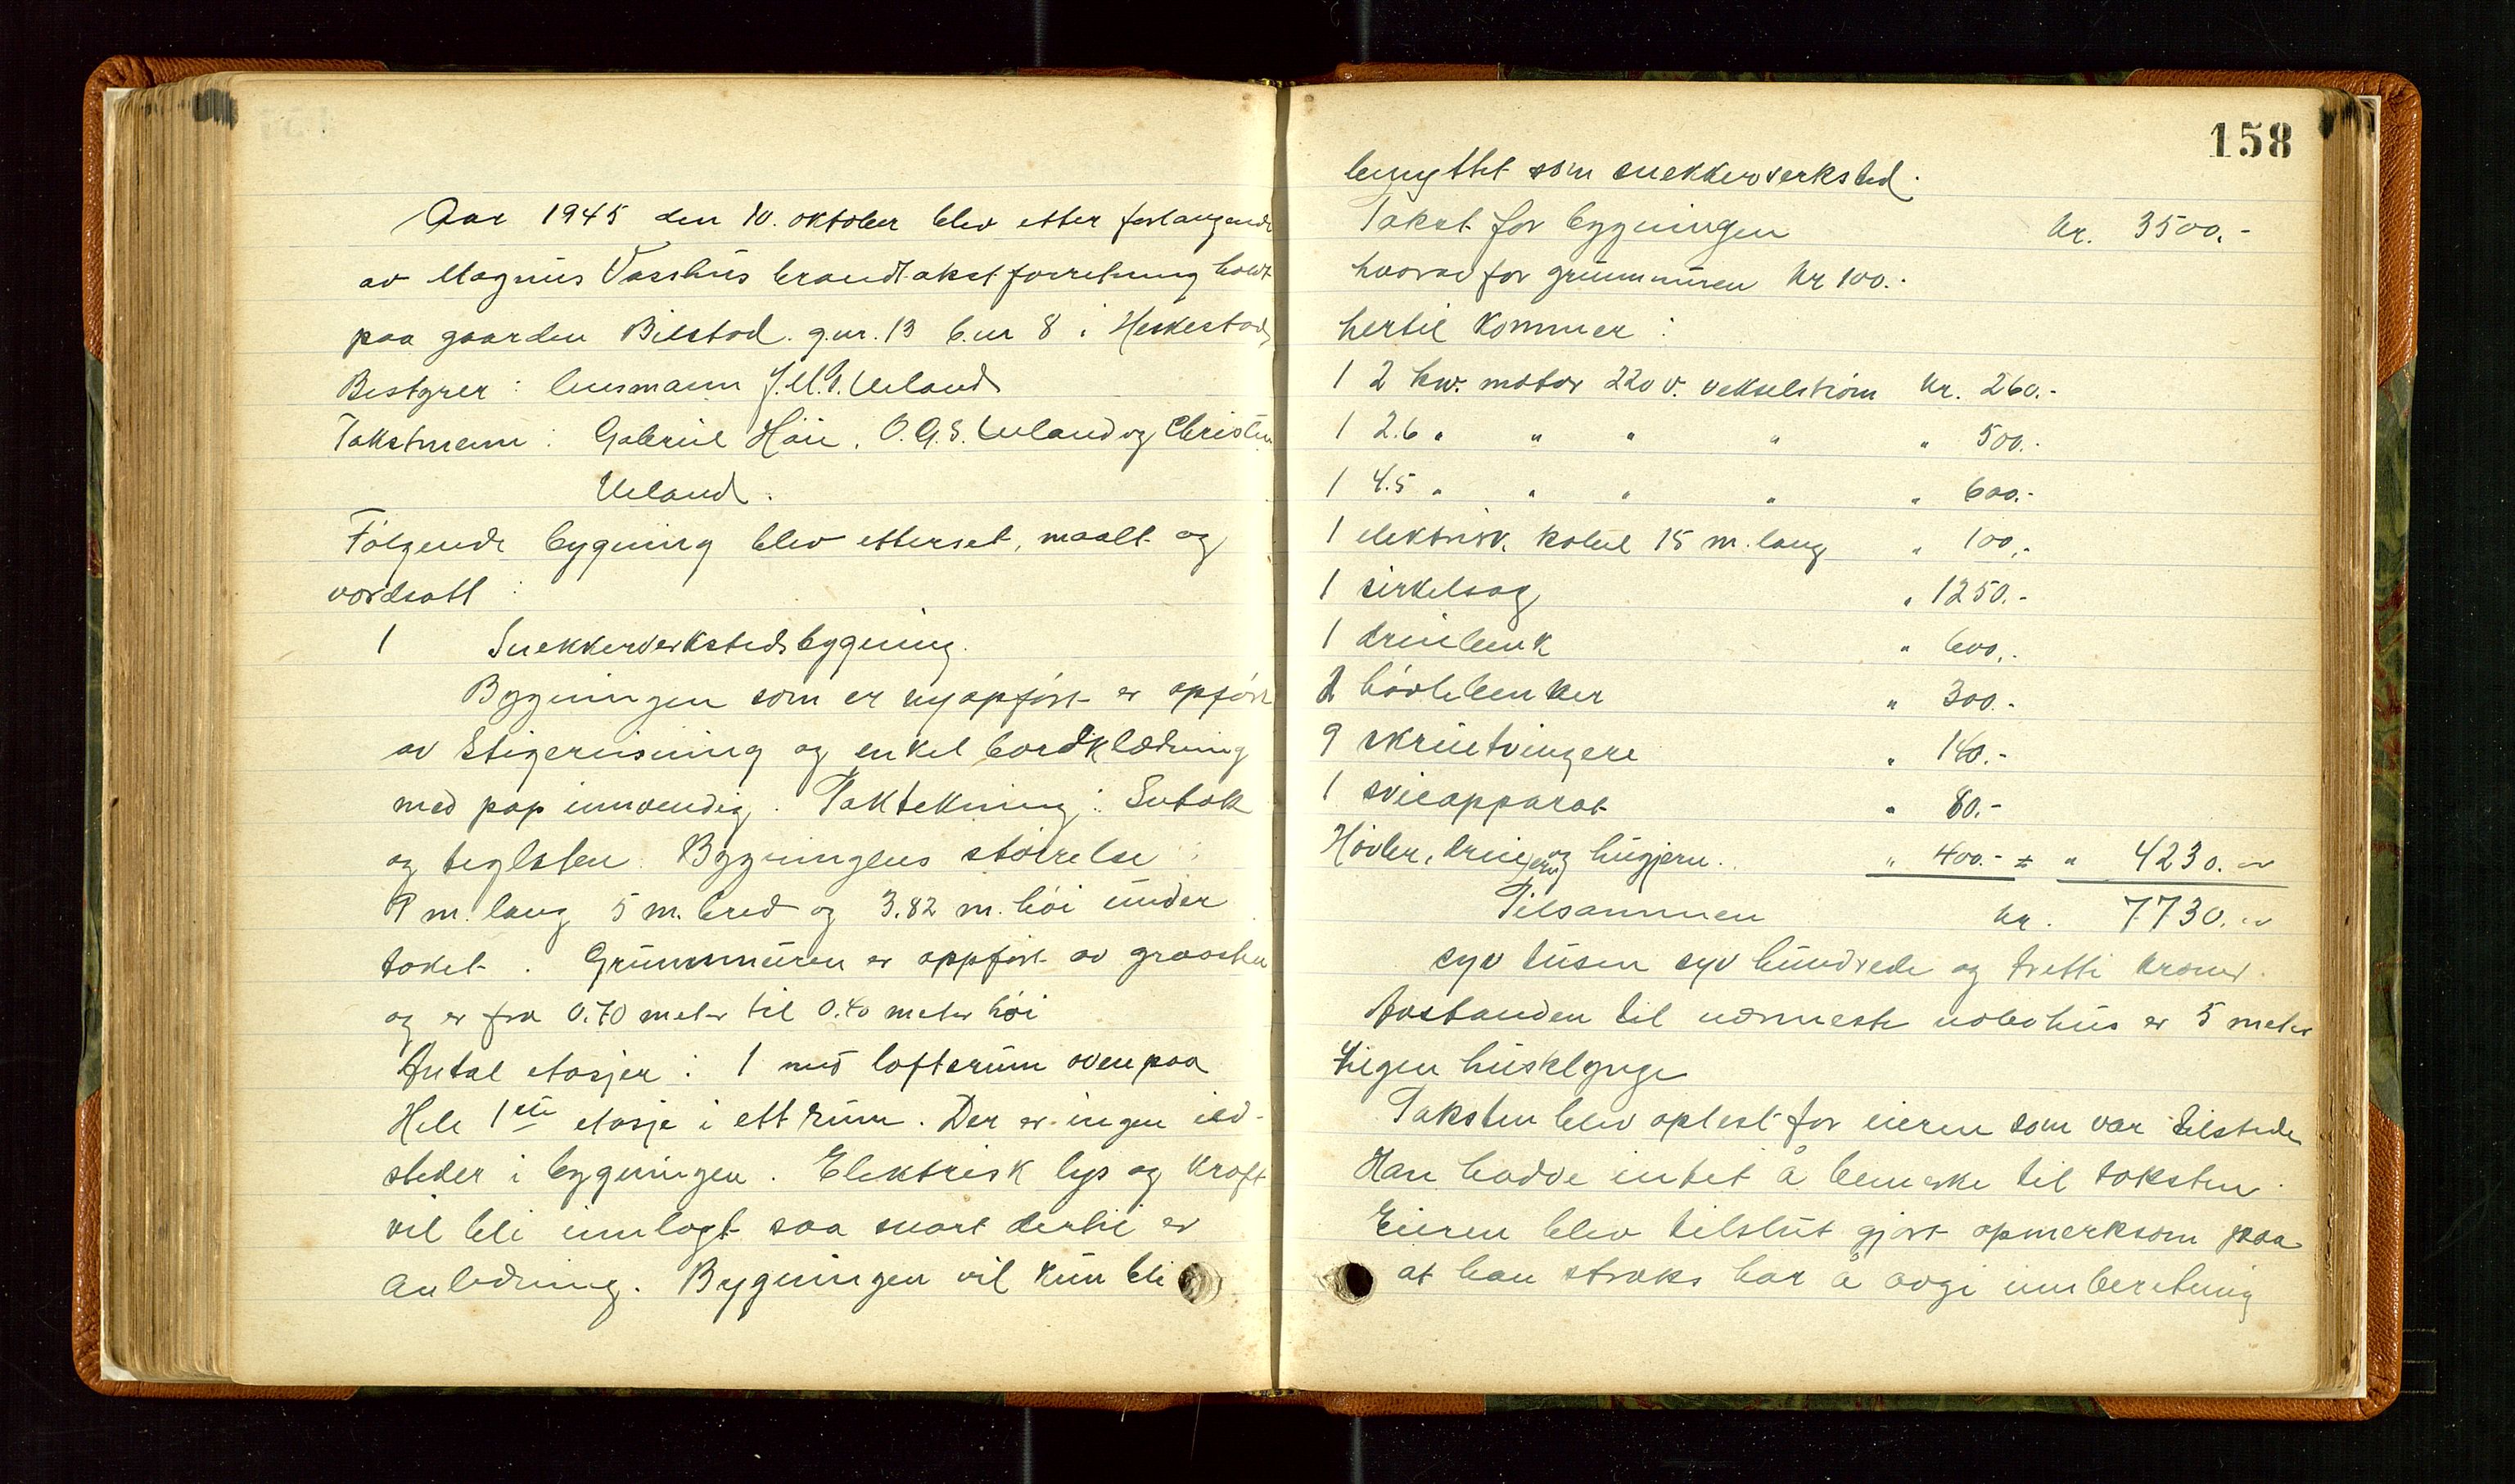 Aar 1945 den 10. oktober blev etter forlangende
av Magnus Vasshus brandtakstforretning holdt
paa gaarden Bilstad g.nr. 13 b.nr 8 i Heskestad
Bestyrer : lensmann J.M.G. Ueland
Takstmenn : Gabriel Høie, O.G.S. Ueland og Christen
Ueland.
Følgende bygning blev etterset, maalt og
verdsatt :
1 Snekkerverkstedsbygning.
Bygningen som er nyopført er opført
av Stigereisning og enkel bordklædning
med pap innvendig. Taktekning : Sutak
og teglsten. Bygningens størrelse :
9 m. lang 5 m. bred og 3.82 m. høi under
taket . Grunnmuren er oppført av graasten
og er fra 0.70 meter til 0.40 meter høi
Antal etasjer : 1 med loftsrum ovenpaa
Hele 1ste etasje i ett rum. Der er ingen ild-
steder i bygningen. Elektrisk lys og kraft
vil bli innlagt saa snart dertil er
anledning. Bygningen vil kun bli
158
benyttet som snekkerverksted.
Takst for bygningen kr. 3500.-
hvorav for grunnmuren kr 100.-
hertil kommer :
1 2 kw. motor 220 v. vekselstrøm kr. 260.-
1 2.6 " " " " " 500.-
1 4.5 " " " " " 600.-
1 elektrisk. kabel 15 m. lang " 100.-
1 sirkelsag " 1250.-
1 dreiebenk " 600.-
2 høvlebenker " 300.-
9 skruetvingere " 140.-
1 sveiseapparat " 80.-
Høvler, dreie og hugjern. " 400.- = " 4230.-
Tilsammen kr. 7730.-
syv tusen syv hundrede og tretti kroner.
Avstanden til nærmeste nabohus er 5 meter
Ingen husklynge
Taksten blev oplest for eieren som var tilstede
Han hadde intet å bemerke til taksten.
Eieren blev tilslut gjort opmerksom paa
at han straks har å avgi innberetning